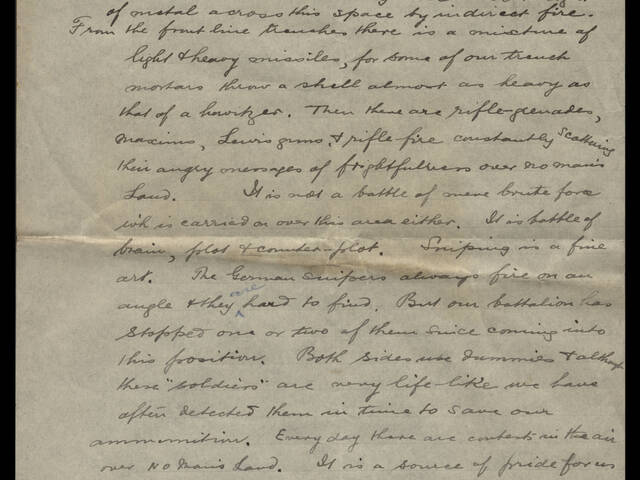 of metal across this space by indirect fire.
From the front line trenches there is a mixture of
light & heavy missiles, for some of our trench
mortars throw a shell almost as heavy as
that of a howitzer. Then there are rifle-grenades,
maxims, Lewis guns, & rifle fire constantly scattering
their angry messages of frightfulness over no man's
Land. It is not a battle of mere brute force
wh is carried on over this area either. It is battle of
brain, plot & counter-plot. Sniping is a fine
art. The German snipers always fire on an
angle & they are hard to find. But our battalion has
stopped one or two of them since coming into
this position. Both sides use dummies & altho
these "soldiers" are very life-like we have
often detected them in time to save our
ammunition. Every day there are contests in the air
over No Man's Land. It is a source of pride for us